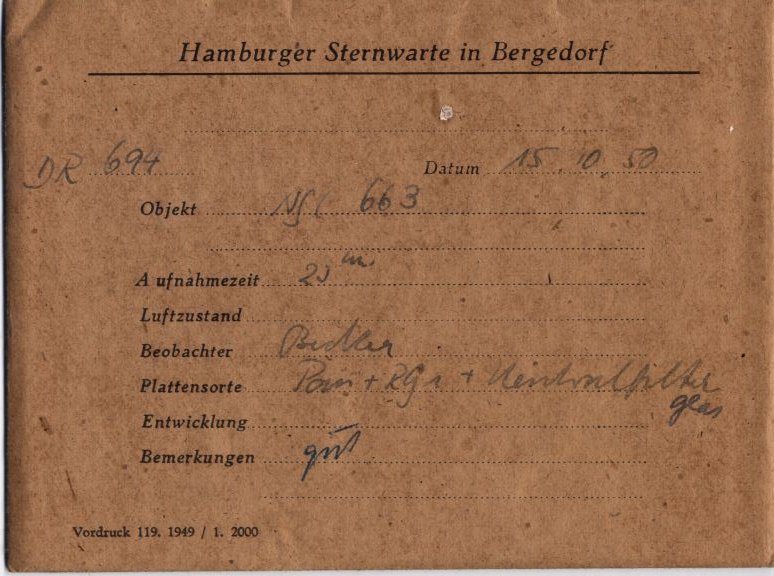 Hamburger Sternwarte in Bergedorf
DR 694 Datum 15.10.50
Objekt NGC 663
Aufnahmezeit
Luftzustand
Beobachter
Plattensorte Pan + RG1 + Neutralfilter
glas
Entwicklung
Bemerkungen gut
Vordruck 119. 1949 / 1. 2000